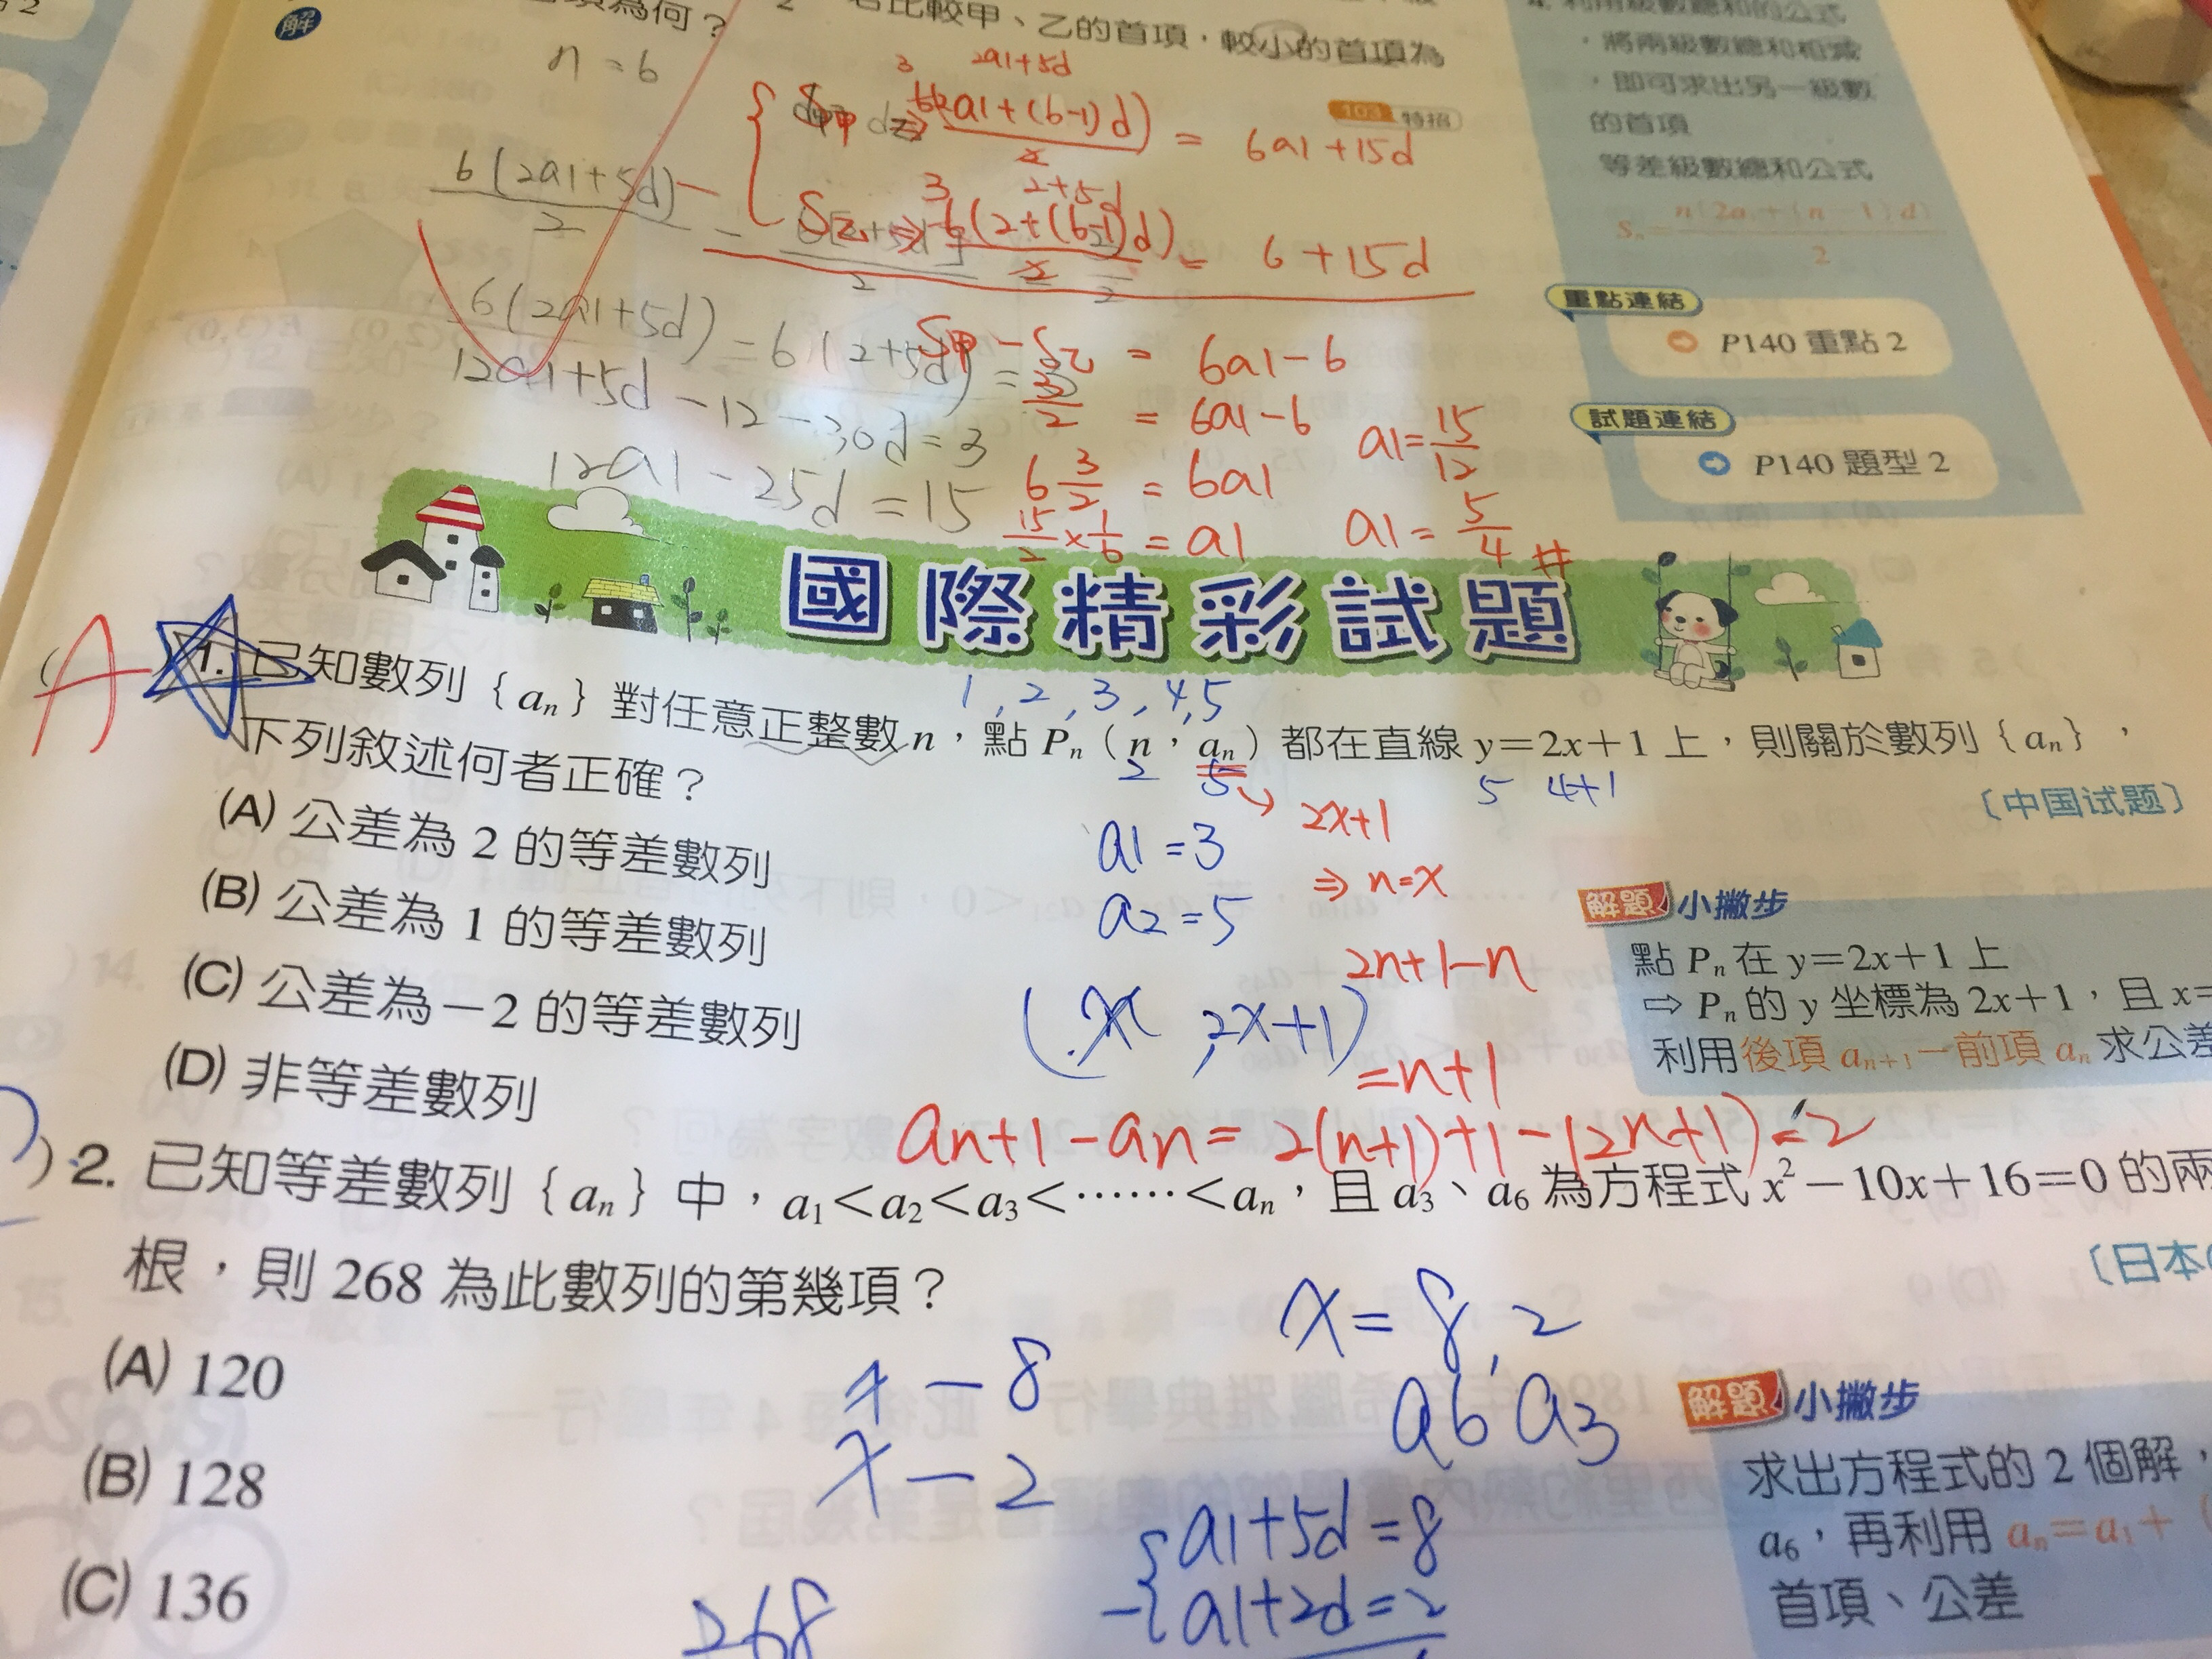 項為何？
若比較甲、乙的首項，較小的首項為
解
n = 6
103 特招
利用級數總和的公式
，將兩級數總和相減
，即可求出另一級數
的首項
等差級數總和公式
Sₙ=n(2a₁+(n－1)d)/2
重點連結
P140 重點 2
試題連結
P140 題型 2
6(2a1+5d)/2
2a1+5d
= 6a1+15d
2+5d
6(2+(6-1)d)/2 = 6+15d
6(2a1+5d) = 6(2+5d) = 3
12a1+5d-12-30d=3
12a1-25d=15
S甲-S乙 = 6a1-6
3/2 = 6a1-6
6 3/2 = 6a1
15/2 × 1/6 = a1
a1=15/12
a1=5/4 #
國際精彩試題
A
1. 已知數列｛aₙ｝對任意正整數 n，點 Pₙ（n，aₙ）都在直線 y＝2x＋1 上，則關於數列｛aₙ｝，
下列敘述何者正確？
〔中国试题〕
1,2,3,4,5
2 5
5 4+1
(A) 公差為 2 的等差數列
(B) 公差為 1 的等差數列
(C) 公差為－2 的等差數列
(D) 非等差數列
a1=3
a2=5
2x+1
⇒ n=x
2n+1-n
=n+1
, 2x+1)
an+1-an=2(n+1)+1-(2n+1)=2
解題小撇步
點 Pₙ 在 y＝2x＋1 上
⇨ Pₙ 的 y 坐標為 2x＋1，且 x＝
利用後項 aₙ₊₁－前項 aₙ 求公差
2. 已知等差數列｛aₙ｝中，a₁＜a₂＜a₃＜⋯⋯＜aₙ，且 a₃、a₆ 為方程式 x²－10x＋16＝0 的兩
根，則 268 為此數列的第幾項？
〔日本
(A) 120
(B) 128
(C) 136
x - 8
x - 2
x = 8, 2
a6 a3
a1+5d=8
a1+2d=2
268
解題小撇步
求出方程式的 2 個解，
a₆，再利用 aₙ＝a₁＋（
首項、公差